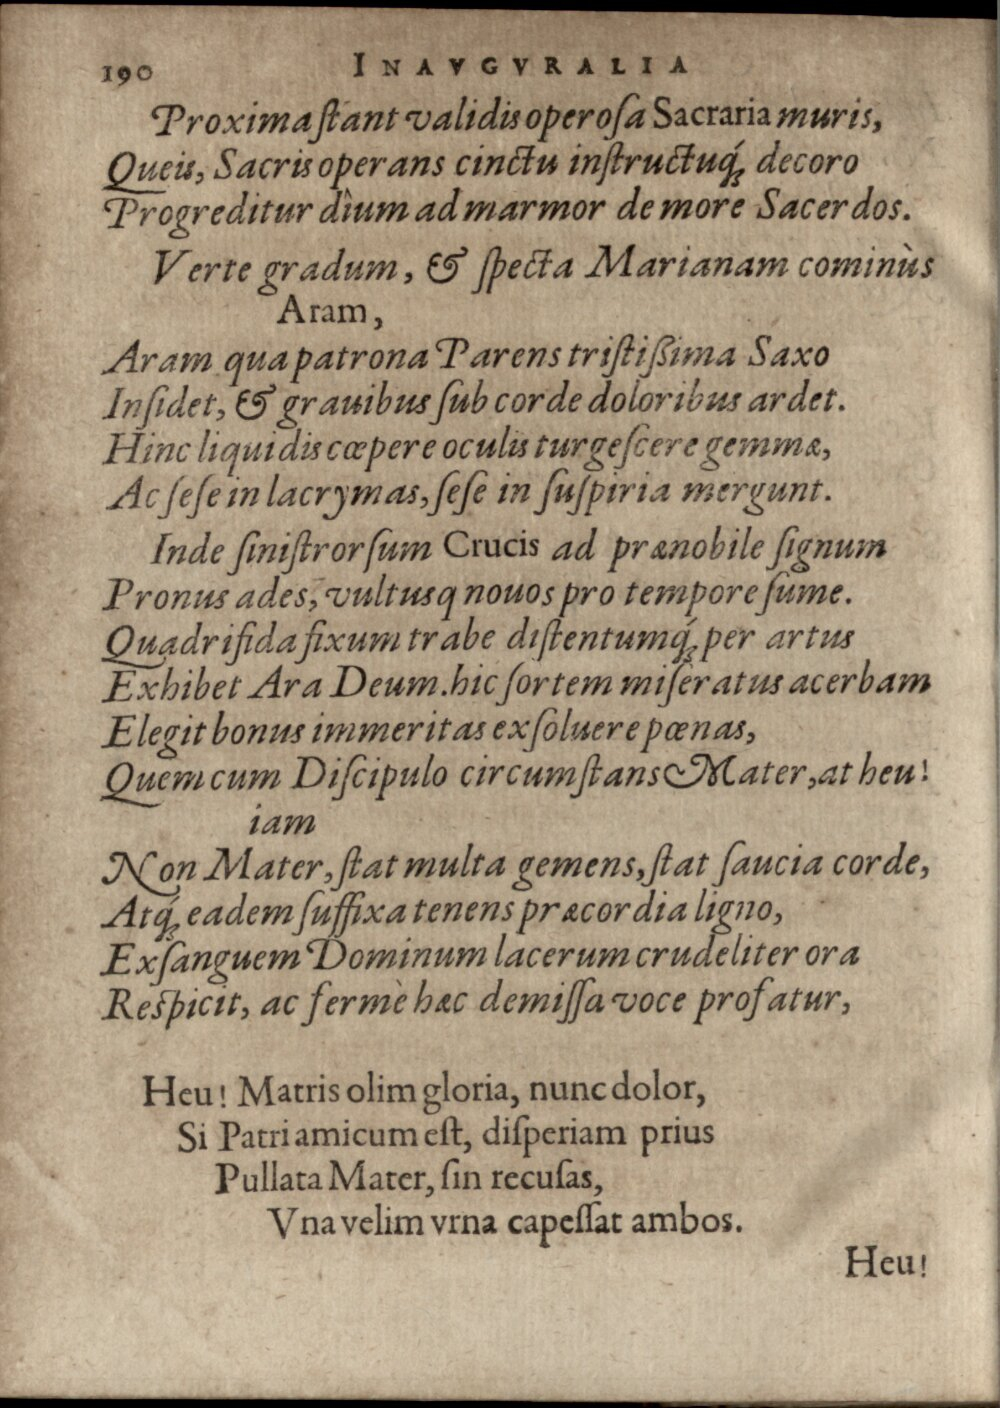 190 INAVGVRALIA
Proxima ſtant validis operoſa Sacraria muris,
Queis, Sacris operans cinctu inſtructuq́; decoro
Progreditur dîum ad marmor de more Sacerdos.
Verte gradum, & ſpecta Marianam cominùs
Aram,
Aram qua patrona Parens triſtißima Saxo
Inſidet, & grauibus ſub corde doloribus ardet.
Hinc liquidis cœpere oculis turgeſcere gemmæ,
Ac ſeſe in lacrymas, ſeſe in ſuſpiria mergunt.
Inde ſiniſtrorſum Crucis ad prænobile ſignum
Pronus ades, vultusq nouos pro tempore ſume.
Quadrifida fixum trabe diſtentumq́; per artus
Exhibet Ara Deum. hic ſortem miſeratus acerbam
Elegit bonus immeritas exſoluere pœnas,
Quem cum Diſcipulo circumſtans Mater, at heu!
iam
Non Mater, ſtat multa gemens, ſtat ſaucia corde,
Atq́; eadem ſuffixa tenens præcordia ligno,
Exſanguem Dominum lacerum crudeliter ora
Reſpicit, ac fermè hæc demiſſa voce profatur,
Heu! Matris olim gloria, nunc dolor,
Si Patri amicum eſt, diſperiam prius
Pullata Mater, ſin recuſas,
Vna velim vrna capeſſat ambos.
Heu!